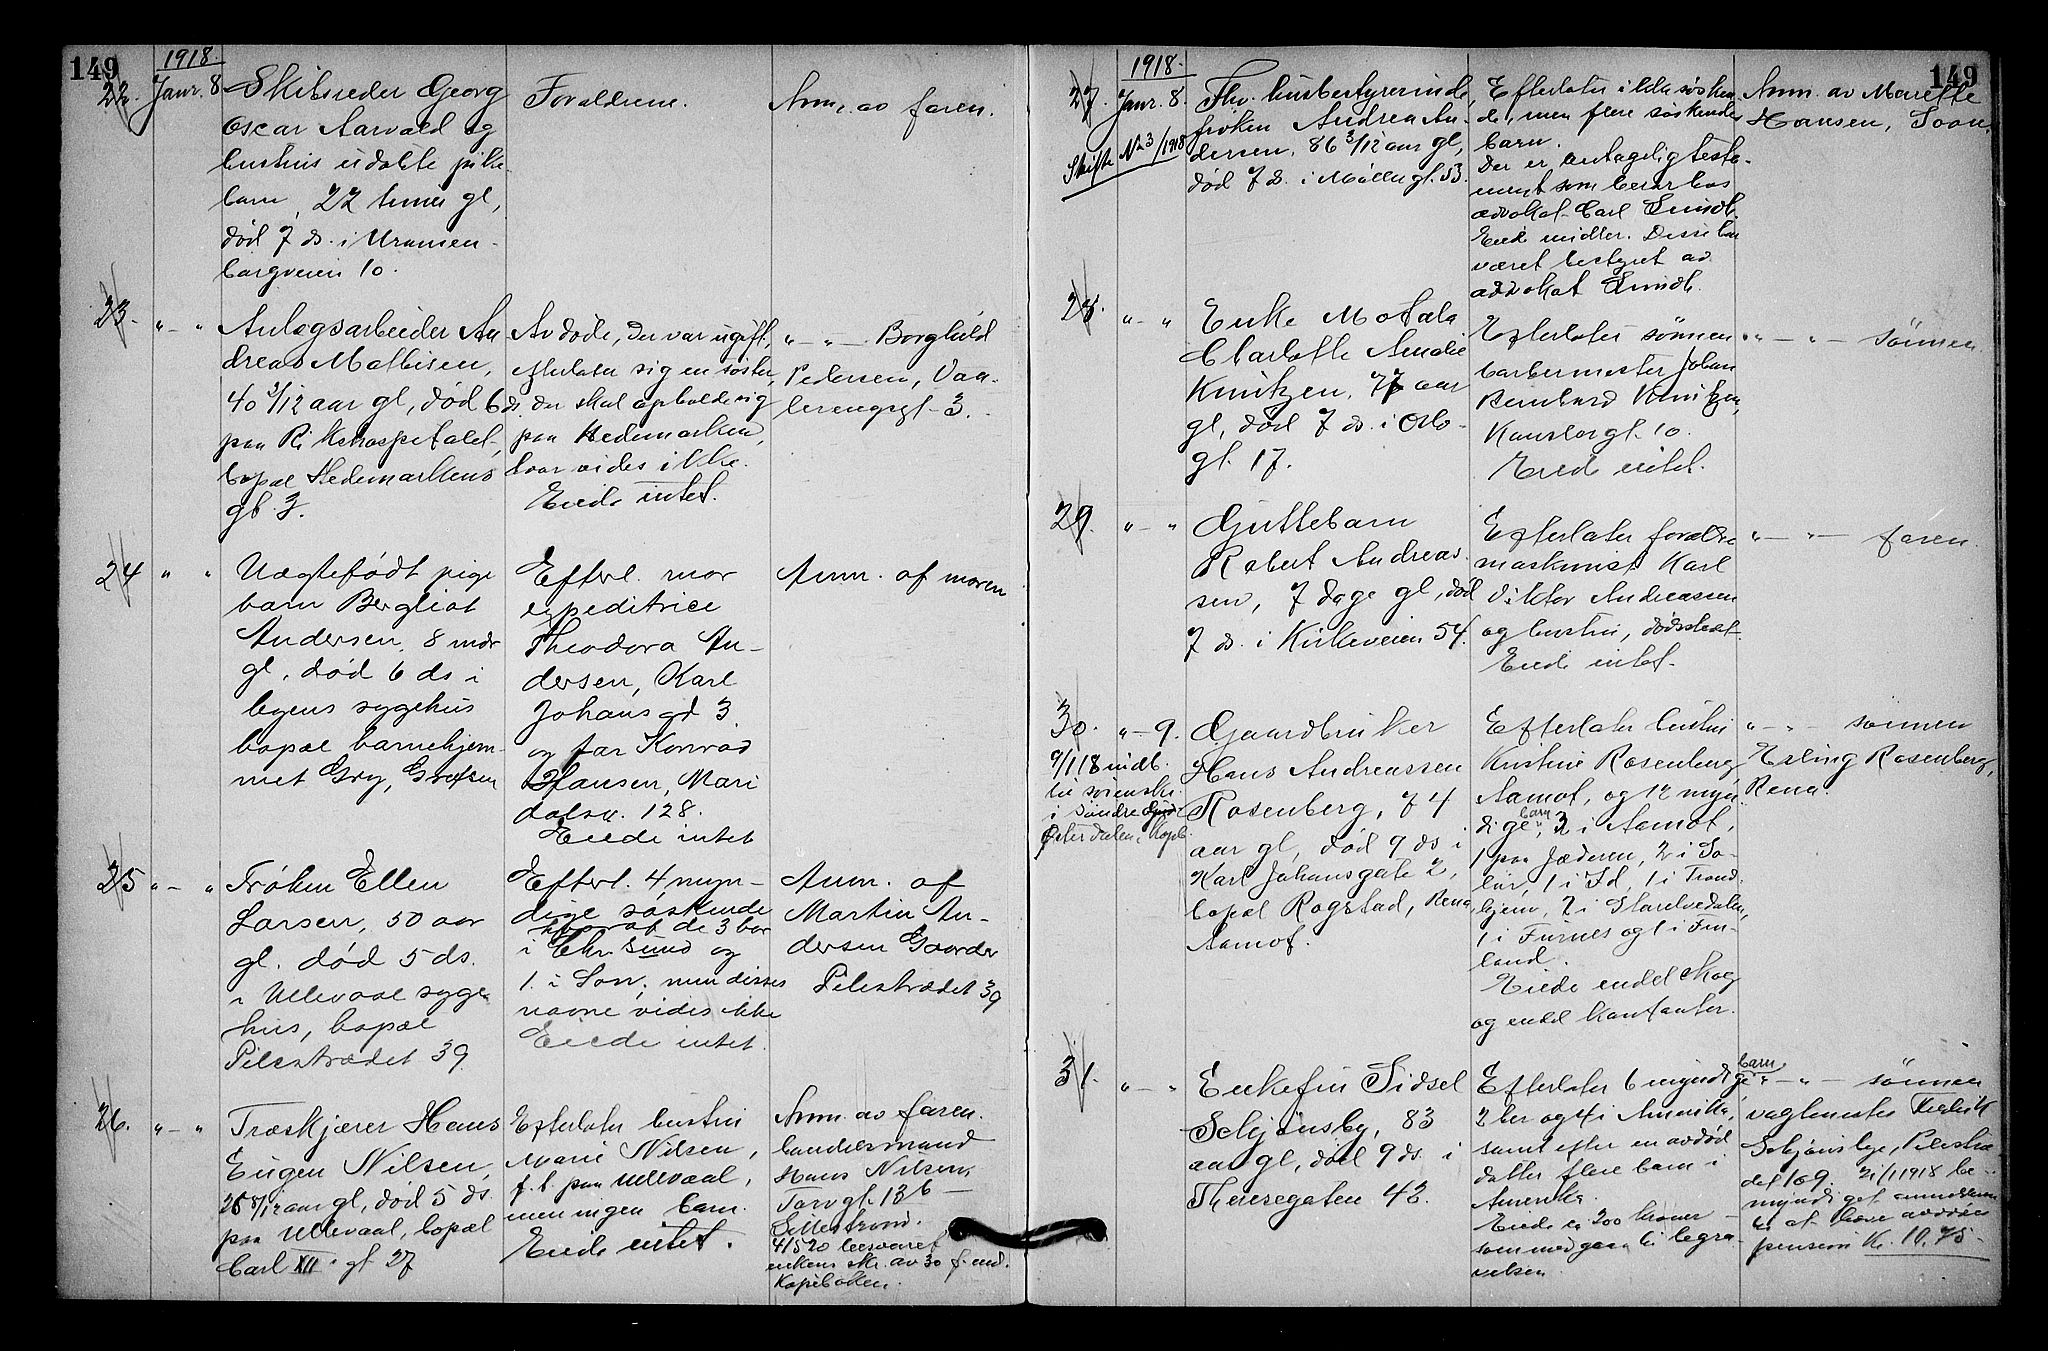 149
1918.
22. Janr. 8
Skibsreder Georg
Oscar Aarvold og
hustrus udøbte pike-
barn, 22 timer gl,
død 7 ds. i Uranien-
borgveien 10.
Forældrene.
Anm. av faren.
23. " - "
Anlægsarbeider An
dreas Mathisen,
40 3/12 aar gl, død 6 ds.
paa Rikshospitalet,
bopæl Hedemarkens
gt. 3.
Avdøde, der var ugift,
efterlater sig en søster,
der skal opholde sig
paa Hedemarken,
hvor vides ikke.
Eiede intet.
" - " - Borghild
Pedersen, Vaa-
lerenggt. 3.
24 " "
Uægtefødt pige
barn Bergliot
Andersen, 8 mdr
gl, død 6 ds i
byens sygehus
bopæl barnehjem-
met Gry, Grefsen
Efterl. mor
expeditrice
Theodora An-
dersen, Karl
Johans gd 3.
og far Konrad
Hansen, Mari
dalsv. 128.
Eiede intet
Anm. af moren
25 " - "
Frøken Ellen
Larsen, 50 aar
gl. død 5 ds.
i Ullevaal syge-
hus, bopæl
Pilestrædet 39
Efterl. 4 myn-
dige søskende
hvoraf de 3 bor
i Chr. sund og
1 i Son, men disses
navne vides ikke
Eiede intet.
Anm. af
Martin An-
dersen Gaarder
Pilestrædet 39
26. " - "
Træskjærer Hans
Eugen Nilsen,
25 8/12 aar gl, død 5 ds.
paa Ullevaal, bopæl
Carl XII. gt 27
Efterlater hustru
Marie Nilsen,
f. t. paa Ullevaal,
men ingen barn.
Eiede intet.
Anm. av faren.
handelsmand
Hans Nilsen,
Torvgt. 13b -
Lillestrøm.
4/5 20 besvaret
enkens skr. av 30 f. md.
Kopiboken.
149
1918.
27. Janr. 8.
Skifte No 3/1918
Fhv. husbestyrerinde,
frøken Andrea An-
dersen, 86 3/12 aar gl,
død 7 ds. i Møllergt. 53.
Efterlater ikke søsken-
de, men flere søskende
barn.
Der er antagelig testa-
ment som beror hos
advokat Carl Lundh.
Eied midler. Disse har
været bestyret av
advokat Lundh.
Anm. av Marette
Hansen, Soon.
28. " - "
Enke Motala
Charlotte Amalie
Knutzen, 77 aar
gl, død 7 ds. i Oslo-
gt. 17.
Efterlater sønnen
barbermester Johan
Bernhard Knutzen,
Kanslergt. 10.
Eied intet.
" - " - sønnen.
29. " - "
Guttebarn
Robert Andreas-
sen, 7 dage gl, død
7 ds. i Kirkeveien 54.
Efterlater forældre
maskinist Karl
Viktor Andreassen
og hustru, dødsstedet.
Eied intet.
" - " - faren.
30. " - 9.
9/1 18 indb.
til sorenskr.
i Søndre
Østerdalen, Kopb.
Gaardbruker
Hans Andreassen
Rosenberg, 74
aar gl, død 9 ds i
Karl Johansgate 2,
bopæl Rogstad, Rena,
Aamot.
Efterlater hustru
Kristine Rosenberg,
Aamot, og 12 myn-
dige barn, 3 i Aamot,
1 paa Jæderen, 2 i So-
lør, 1 i Id, 1 i Trond-
hjem, 2 i Storelvedalen,
1 i Furnes og 1 i Fin-
land.
Eiede endel skog
og endel kontanter.
" - " - sønnen
Erling Rosenberg,
Rena.
31. " - "
Enkefru Sidsel
Schjønsby, 83
aar gl, død 9 ds. i
Theresegaten 42.
Efterlater 6 myndige barn
2 her og 4 i Amerika,
samt efter en avdød
datter flere barn i
Amerika.
Eiede ca 200 kroner -
som medgaar til begra-
velsen.
" - " - sønnen
vagtmester Fredrik
Schjønsbye, Pilestræ
det 109. 21/1 1918 be-
myndiget anmelderen
til at hæve avdødes
pension Kr. 10.75-